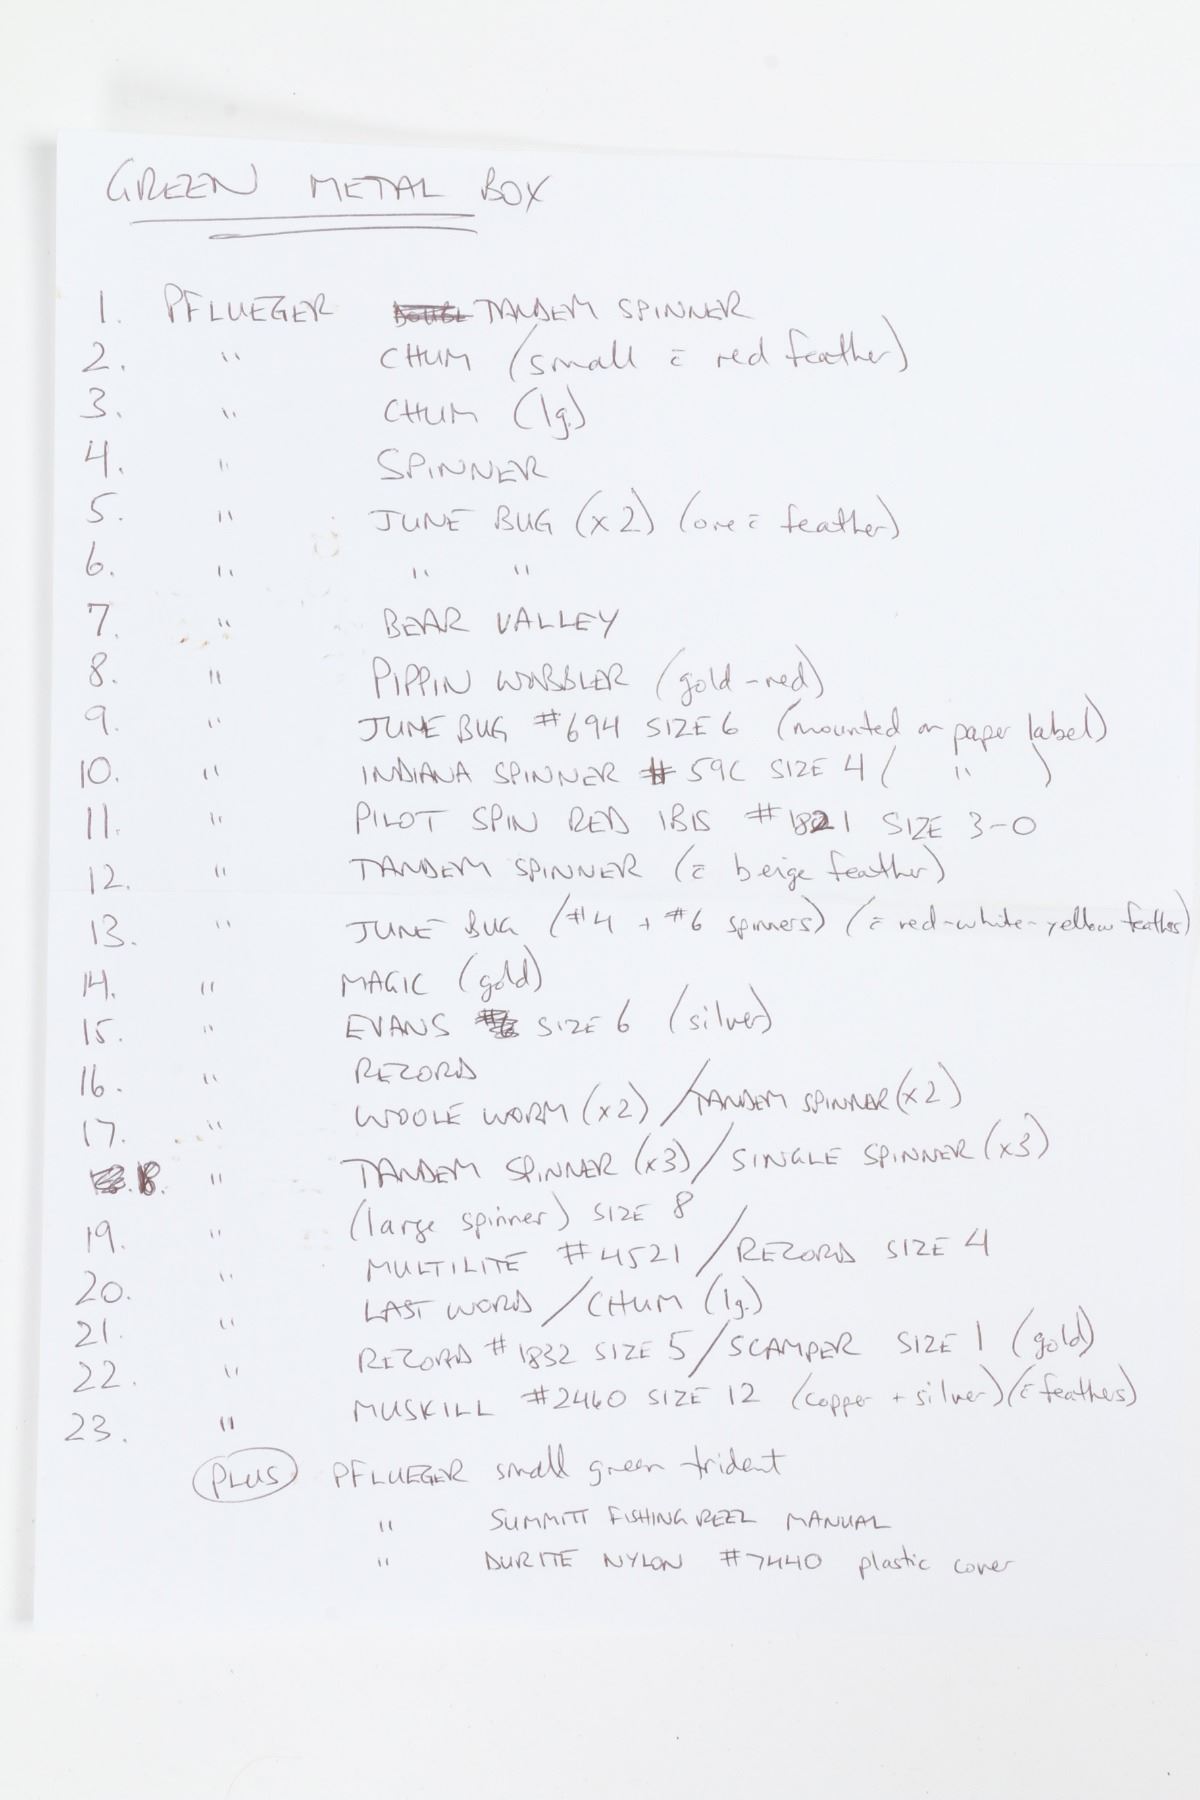 GREEN METAL BOX
1. PFLUEGER TANDEM SPINNER
2. " CHUM (small c̄ red feather)
3. " CHUM (lg.)
4. " SPINNER
5. " JUNE BUG (x2) (one c̄ feather)
6. " " "
7. " BEAR VALLEY
8. " PIPPIN WOBBLER (gold-red)
9. " JUNE BUG #694 SIZE 6 (mounted on paper label)
10. " INDIANA SPINNER #59C SIZE 4 ( " )
11. " PILOT SPIN RED IBIS #1821 SIZE 3-0
12. " TANDEM SPINNER (c̄ beige feather)
13. " JUNE BUG (#4 + #6 spinners) (c̄ red-white-yellow feather)
14. " MAGIC (gold)
15. " EVANS SIZE 6 (silver)
16. " RECORD
17. " WOOLE WORM (x2) / TANDEM SPINNER (x2)
18. " TANDEM SPINNER (x3) / SINGLE SPINNER (x3)
19. " (large spinner) SIZE 8
20. " MULTILITE #4521 / RECORD SIZE 4
21. " LAST WORD / CHUM (lg.)
22. " RECORD #1832 SIZE 5 / SCAMPER SIZE 1 (gold)
23. " MUSKILL #2460 SIZE 12 (copper + silver) (c̄ feathers)
PLUS PFLUEGER small green trident
" SUMMITT FISHING REEL MANUAL
" DURITE NYLON #7440 plastic cover